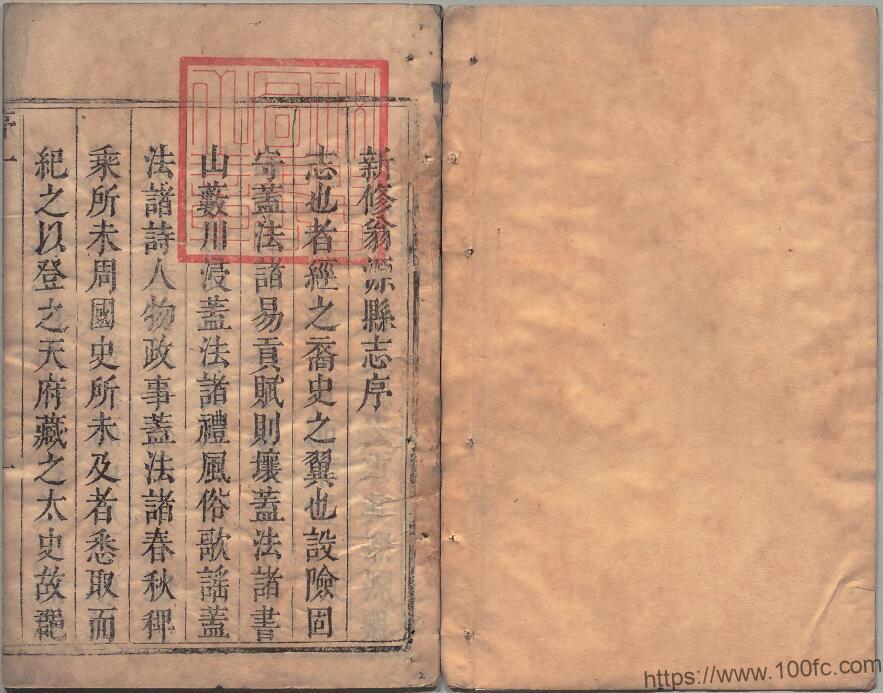 新修翁源縣志序
志也者經之裔史之翼也設險固
守蓋法諸易貢賦則壤蓋法諸書
山藪川浸蓋法諸禮風俗歌謡蓋
法諸詩人物政事蓋法諸春秋稗
乘所未周國史所未及者悉取而
紀之以登之天府藏之太史故
序 一
2
https://www.100fc.com